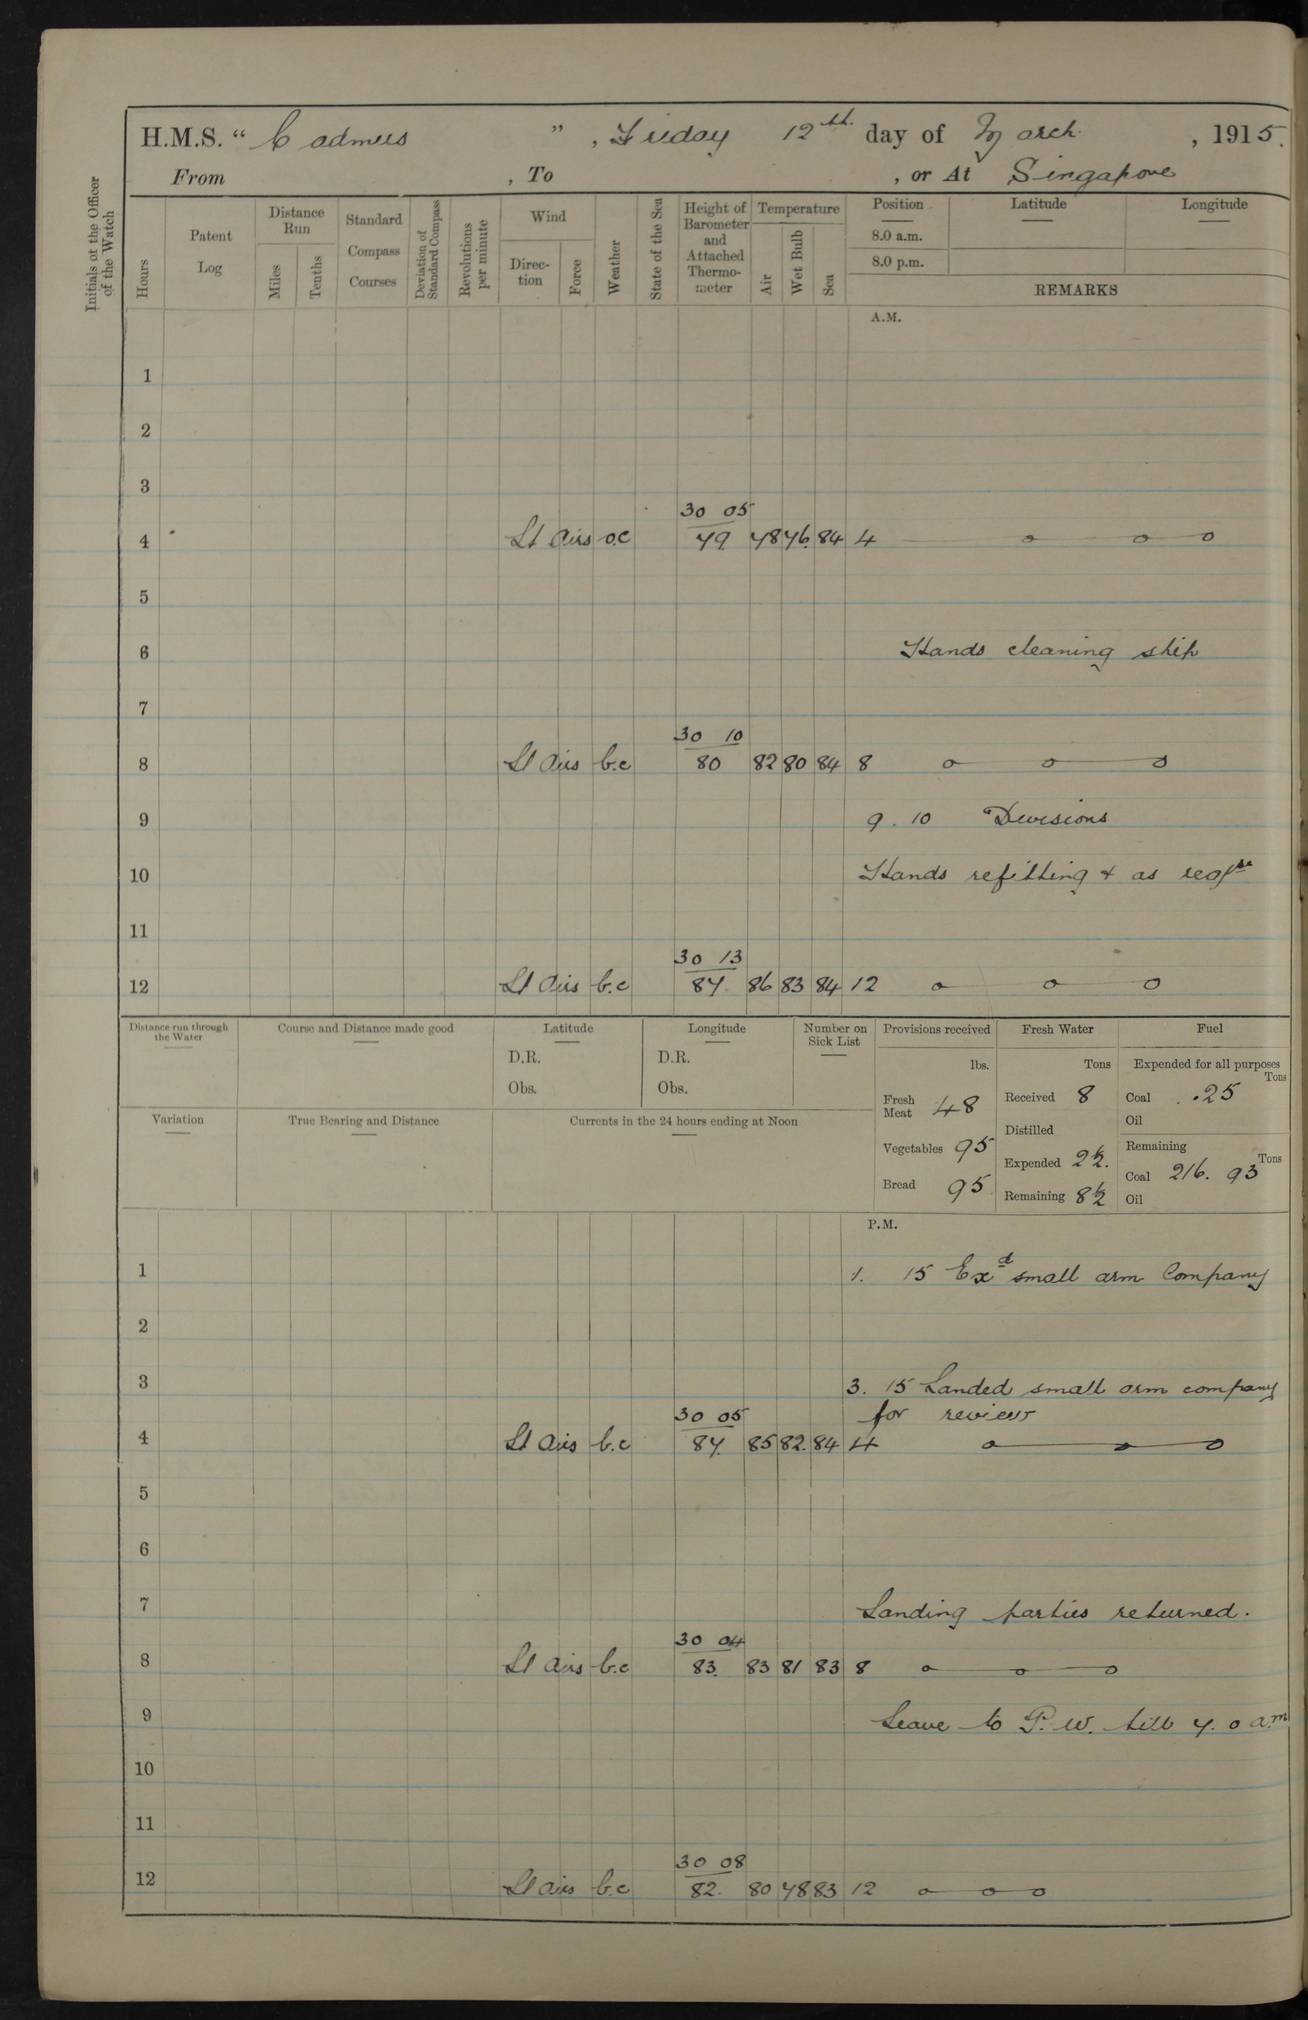 H.M.S. “ Cadmus ” , Friday 12th day of March , 1915.
From , To , or At Singapore
Initials of the Officer of the Watch
Hours
Patent Log
Distance Run
Miles
Tenths
Standard Compass Courses
Deviation of Standard Compass
Revolutions per minute
Wind
Direction
Force
Weather
State of the Sea
Height of Barometer and Attached Thermometer
Temperature
Air
Wet Bulb
Sea
Position
8.0 a.m.
8.0 p.m.
Latitude
Longitude
REMARKS
A.M.
1
2
3
30 05
4 Lt airs o.c 79. 78 76. 84 4
5
6 Hands cleaning ship
7
30 10
8 Lt airs b.c 80 82 80 84 8
9 9. 10 Divisions
10 Hands refitting & as reqre
11
30 13
12 Lt airs b.c 87. 86 83 84 12
Distance run through the Water
Course and Distance made good
Latitude
D.R.
Obs.
Longitude
D.R.
Obs.
Number on Sick List
Variation
True Bearing and Distance
Currents in the 24 hours ending at Noon
Provisions received
lbs.
Fresh Meat 48
Vegetables 95
Bread 95
Fresh Water
Tons
Received 8
Distilled
Expended 2½.
Remaining 8½
Fuel
Expended for all purposes
Tons
Coal .25
Oil
Remaining
Tons
Coal 216. 93
Oil
P.M.
1 1. 15 Exd small arm Company
2
3 3. 15 Landed small arm company
30 05 for review
4 Lt airs b.c 87. 85 82. 84 4
5
6
7 Landing parties returned.
30 04
8 Lt airs b.c 83. 83 81 83 8
9 Leave to P.W. till 7. 0 a.m
10
11
30 08
12 Lt airs b.c 82. 80 78 83 12